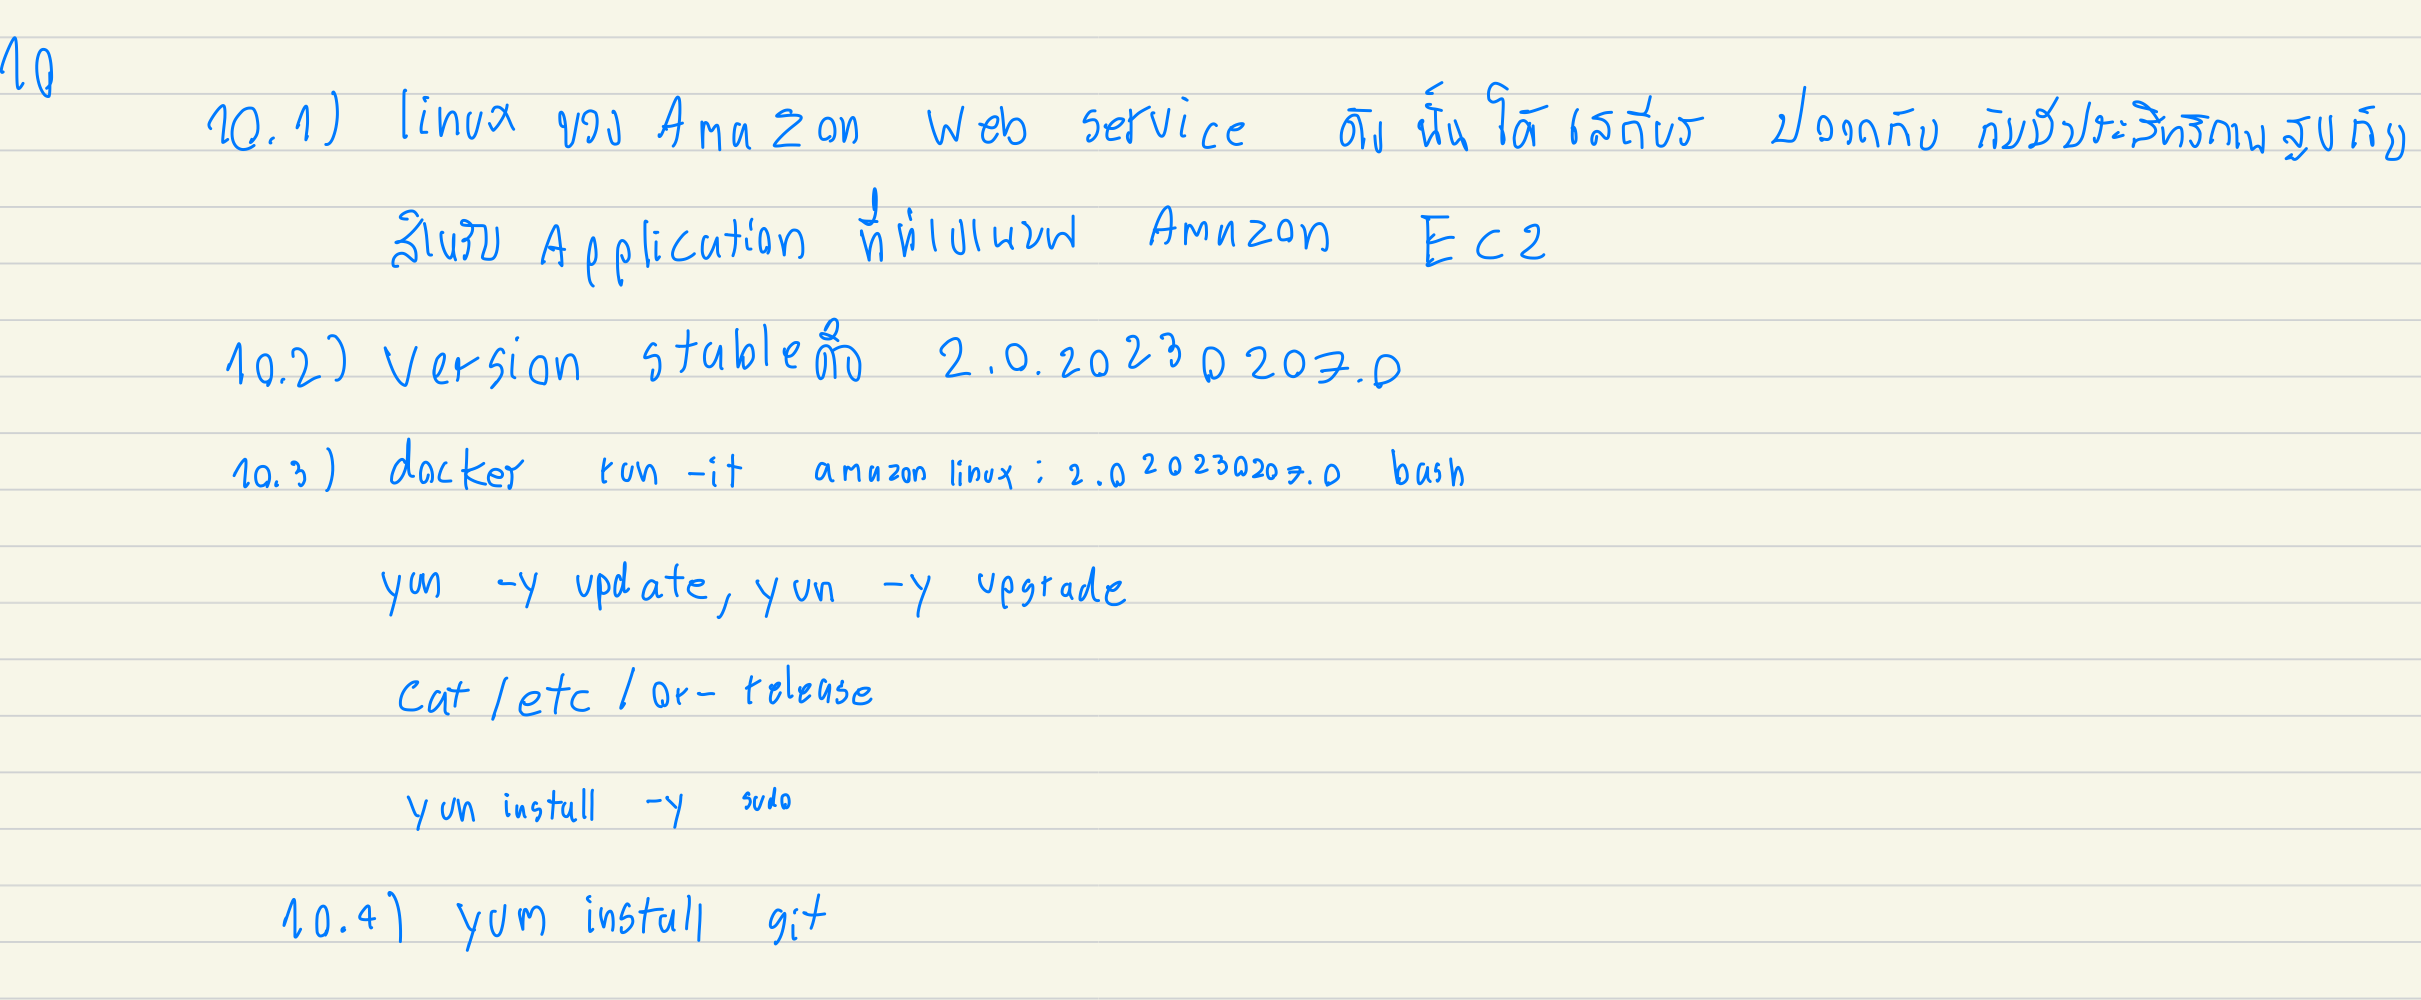 10
10.1) linux ของ Amazon Web service ดัง นั้น ได้ เสถียร ปลอดภัย กับมีประสิทธิภาพสูง
สำหรับ Application ที่ Amazon EC2
10.2) Version stable คือ 2.0.20230207.0
10.3) docker run -it amazon linux : 2.0 20230207.0 bash
yum -y update, yum -y upgrade
Cat /etc / or- release
yum install -y sudo
10.4) yum install git